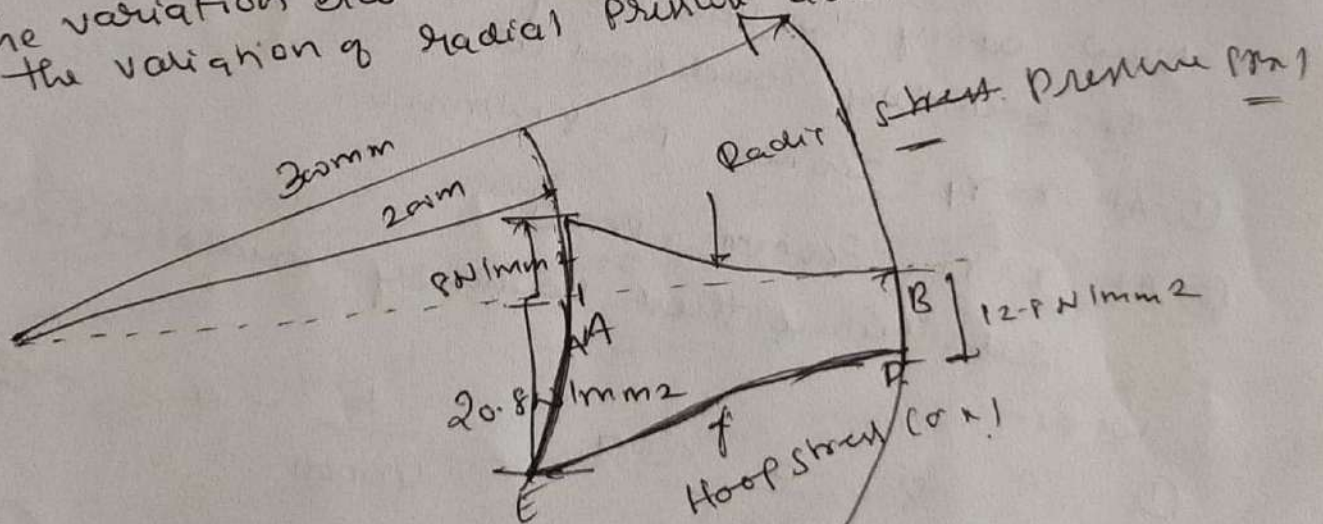 ne variation
the variation of radial
300mm
Radi
stress pressure
8N/mm
B
12.8 N/mm2
A
20.8N/mm2
Hoop stress (σx)
E